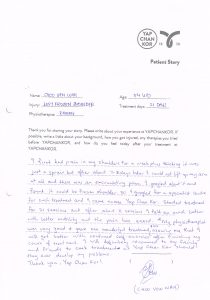 YAP
CHAN
KOR
Patient Story
Name: CHOO VEN WAH
Age: 54 YRS
Injury: LEFT FROZEN SHOULDER
Treatment days: 21 DAYS
Physiotherapist:
Thank you for sharing your story. Please write about your experience at YAPCHANKOR. If
possible, write a little about your background, how you got injured, any therapies you tried
before YAPCHANKOR, and how do you feel today after your treatment at
YAPCHANKOR.
I first had pain in my shoulder for a week plus thinking it was
just a sprain but after about 2 I could not lift up my arm
at all and there was an excruciating pain. I googled about it and
found it could be frozen shoulder. So I googled for a specialist centre
for such treatment and I came across Yap Chan Kor. Started treatment
for 21 sessions and after about 6 sessions I felt so much better
with better mobility and the pain has eased. My physiotherapist
was very good & gave me wonderful treatment, assuring me that I
will get better with continued and
course of treatment. I will definitely recommend to my family
and friends to seek treatment at Yap Chan Kor should
they ever develop my problems.
Thank you, Yap Chan Kor!
(CHOO VEN WAH)